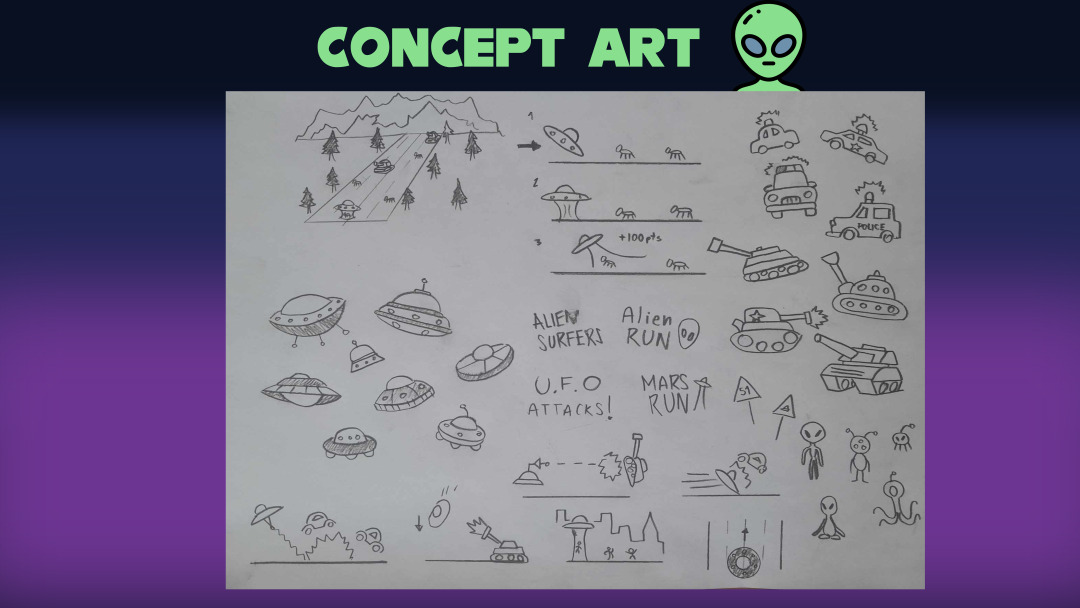 CONCEPT ART
1
2
3
+100pts
POLICE
ALIEN
SURFERS
Alien
RUN
U.F.O
ATTACKS!
MARS
RUN
51